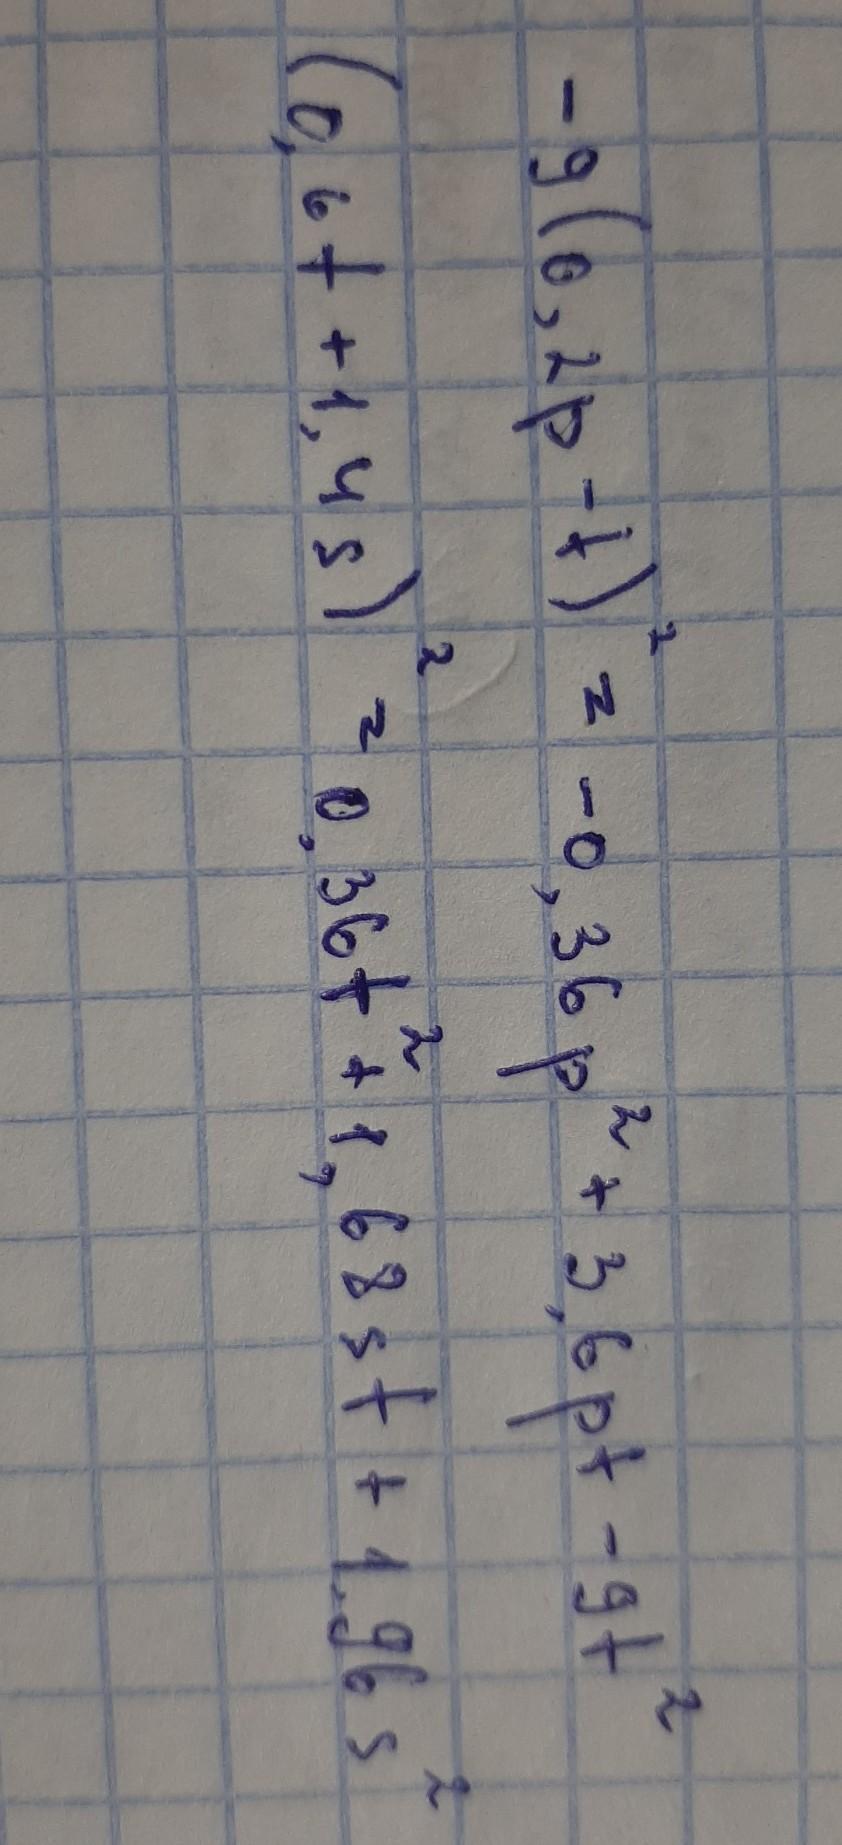 -9(0,2p-t)² = -0,36p² + 3,6pt - 9t²
(0,6t + 1,4s)² = 0,36t² + 1,68st + 1,96s²